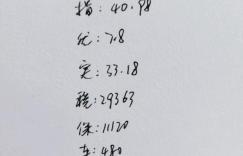 指: 40.98
优: 7.8
实: 33.18
税: 29363
保: 11120
车: 480